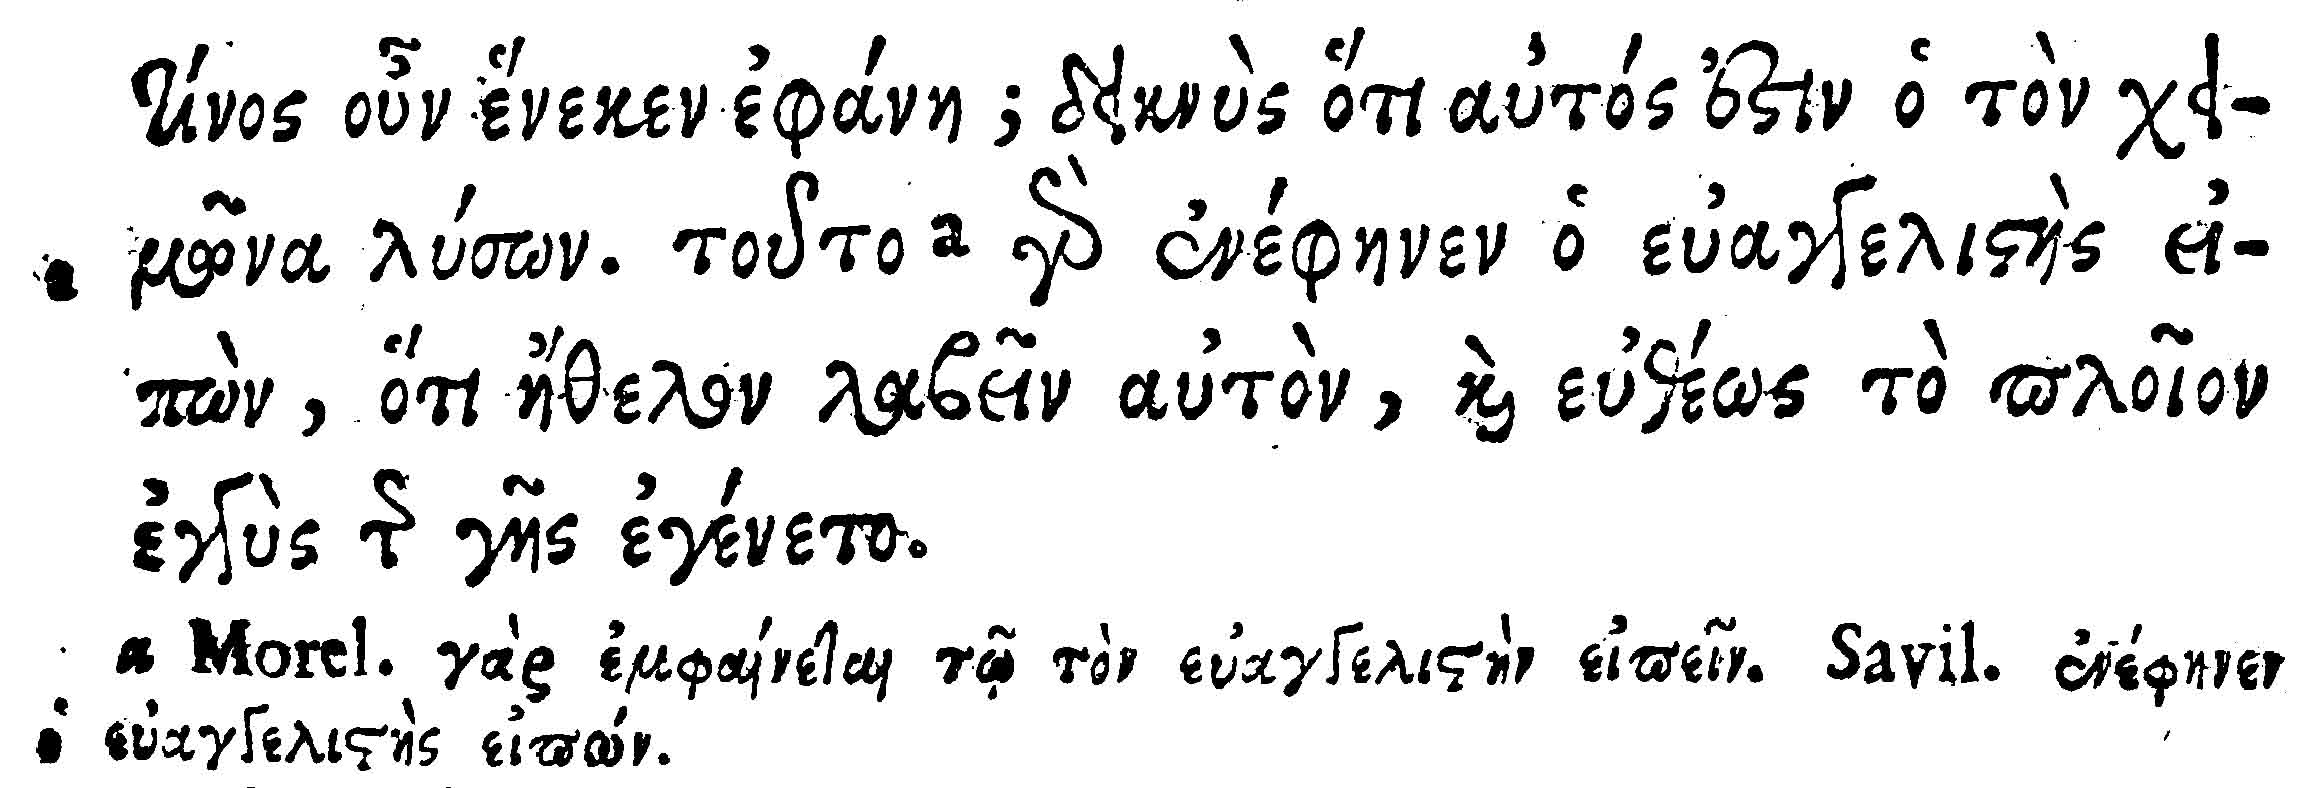 τίνος οὖν ἕνεκεν ἐφάνη; δεικνὺς ὅτι αὐτός ἐστιν ὁ τὸν χει-
μῶνα λύσων. τοῦτο a γὰρ ἐνέφηνεν ὁ εὐαγγελιστὴς εἰ-
πὼν, ὅτι ἤθελον λαβεῖν αὐτὸν, καὶ εὐθέως τὸ πλοῖον
ἐγγὺς τῆς γῆς ἐγένετο.
a Morel. γὰρ ἐμφαίνεται τῷ τὸν εὐαγγελιστὴν εἰπεῖν. Savil. ἐνέφηνεν
ὁ εὐαγγελιστὴς εἰπών.